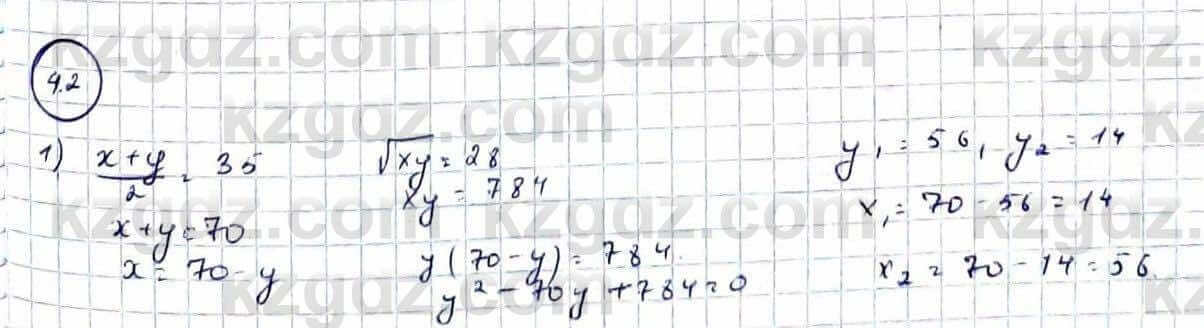 4.2
1) (x+y)/2 = 35
x+y=70
x=70-y
√xy = 28
xy = 784
y(70-y)=784.
y²-70y+784=0
y₁=56, y₂=14
x₁=70-56=14
x₂=70-14=56.
kzgdz.com kzgdz.com kzgdz.com
kzgdz.com
kzgdz.com kzgdz.com kzgdz.com
kzgdz.com